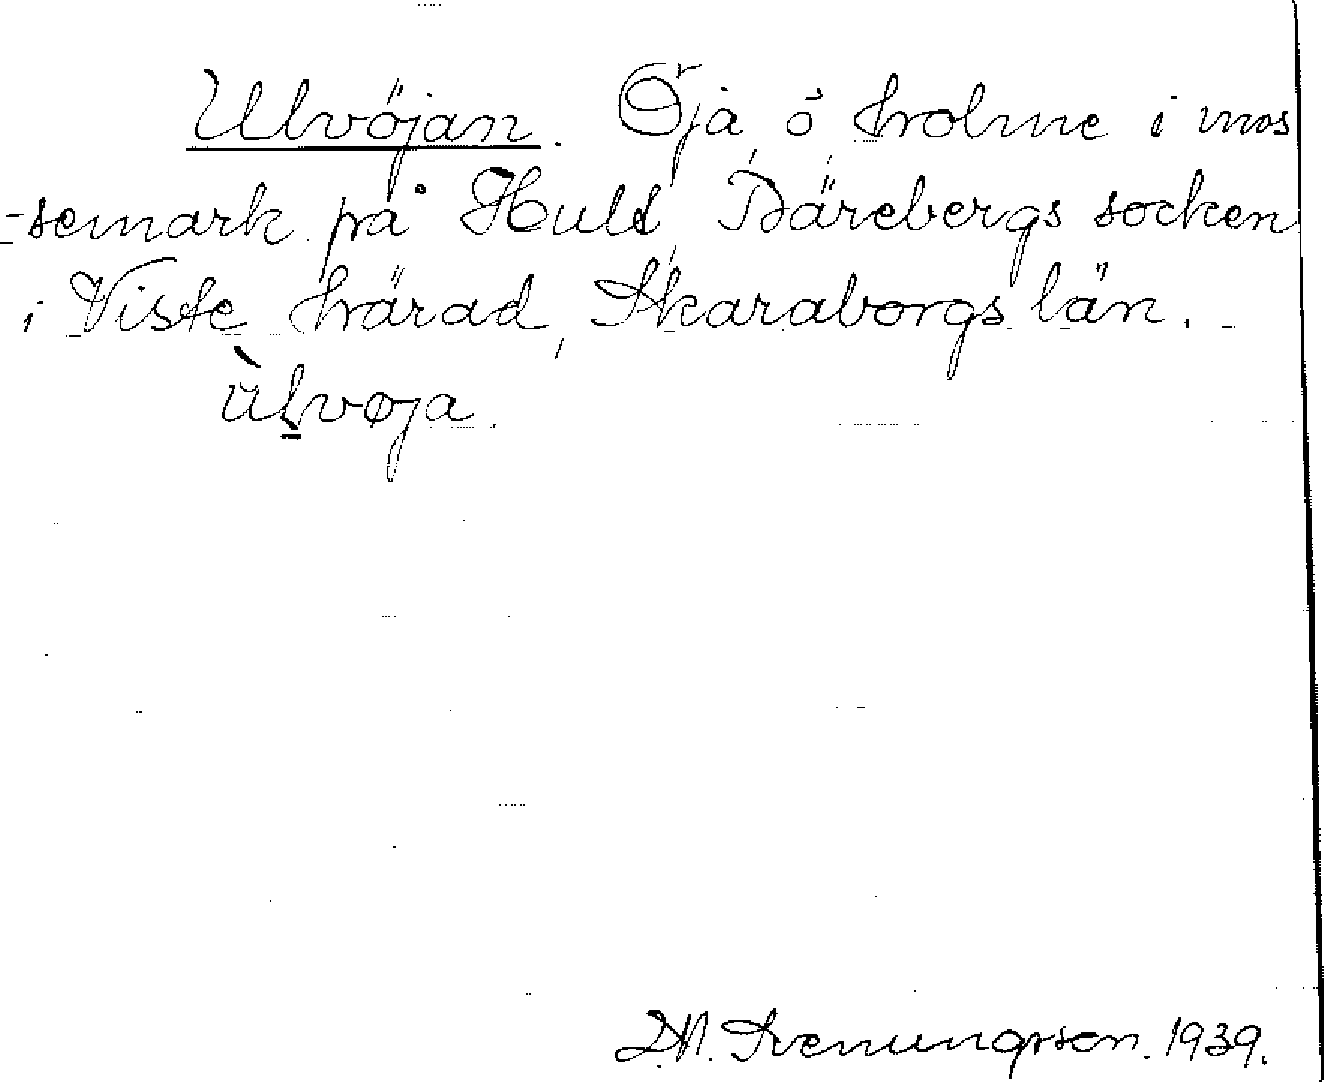 Ulvöjan. Öja, ö, holme i mos
-semark på Huld, Bärebergs socken
i Viste härad, Skaraborgs län.
ùlvøja.
D.N. Svenungsson. 1939.